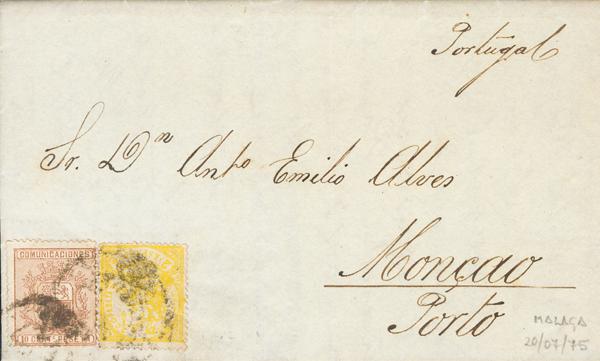 Portugal
Sr. Dn Anto Emilio Alves
Monçao
Porto
COMUNICACIONES
10 CENT. PESETA
MALAGA
20/07/75